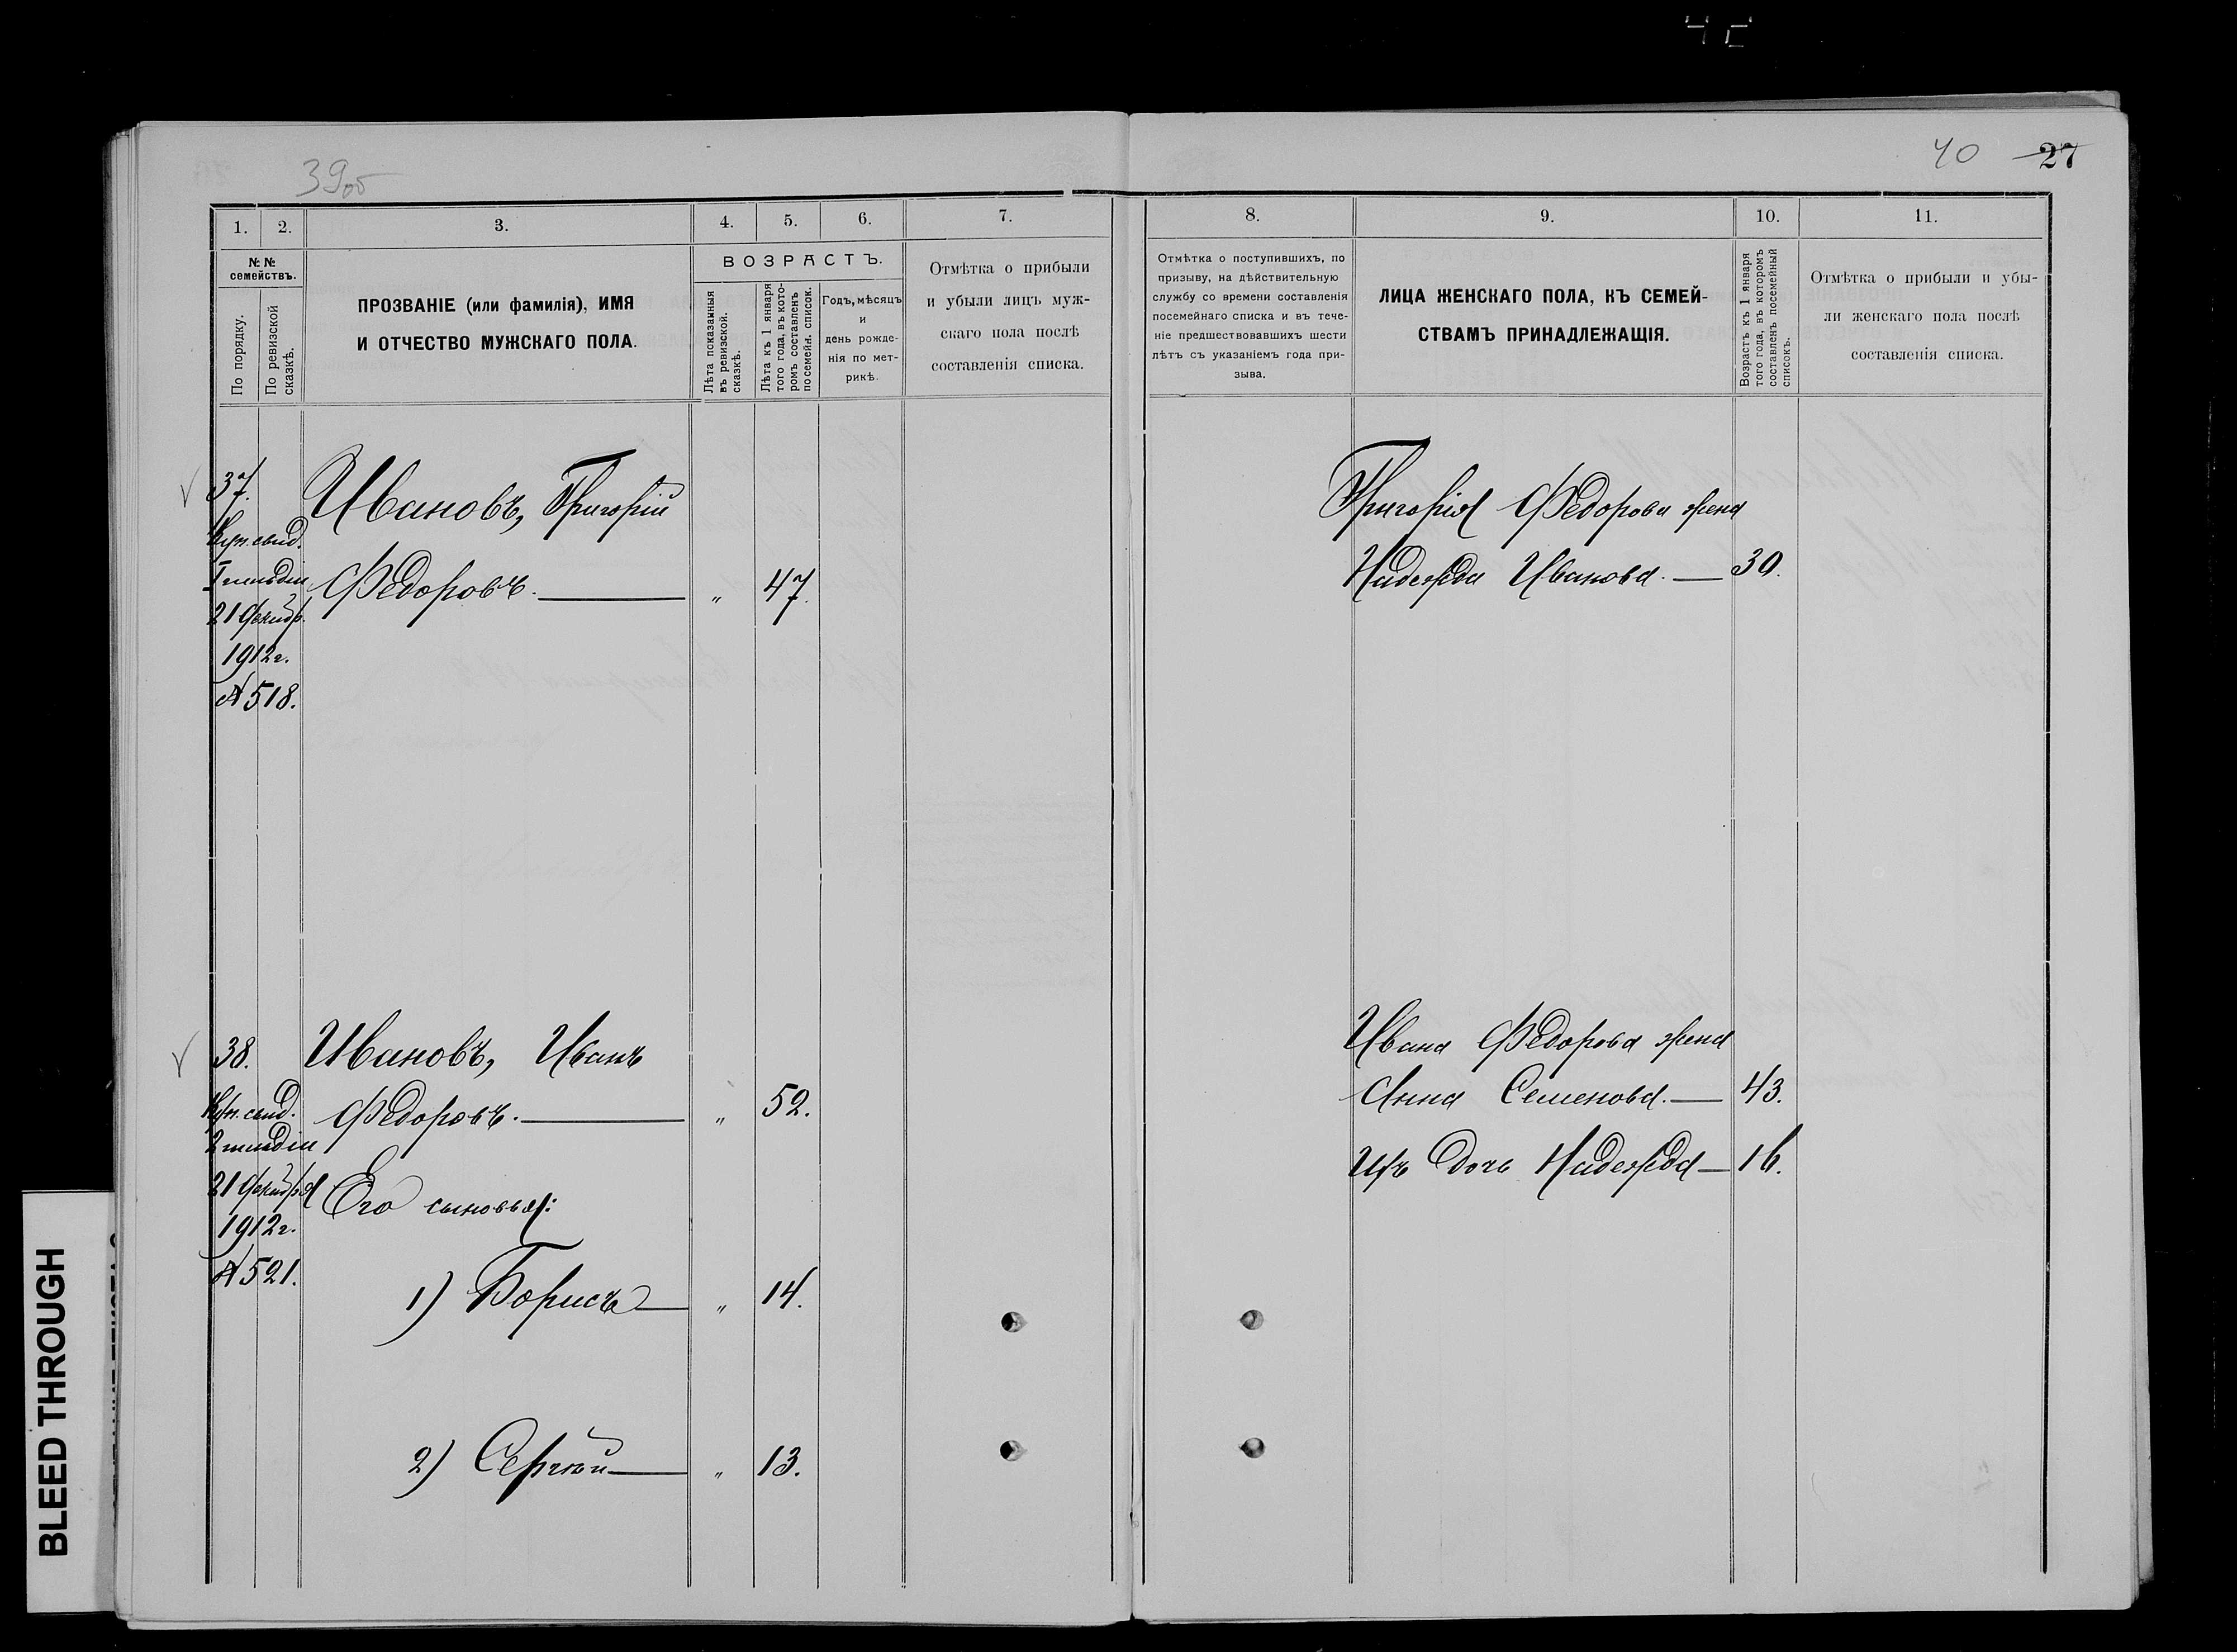 39об
40 27
1. 2. 3. 4. 5. 6. 7.
№№ семействъ.
По порядку.
По ревизской сказкѣ.
ПРОЗВАНІЕ (или фамилія), ИМЯ
И ОТЧЕСТВО МУЖСКАГО ПОЛА.
ВОЗРАСТЪ.
Лѣта показанныя
въ ревизской.
сказкѣ.
Лѣта къ 1 января
того года, въ кото-
ромъ составленъ
посемейн. список.
Годъ, мѣсяцъ
и
день рожде-
нія по мет-
рикѣ.
Отмѣтка о прибыли
и убыли лицъ муж-
скаго пола послѣ
составленія списка.
37.
Куп. свид.
I гильдіи
21 Декабр.
1912 г.
№ 518.
Ивановъ, Григорій
Федоровъ. — „ 47.
38.
Куп. свид.
2 гильдіи
21 Декабря
1912 г.
№ 521.
Ивановъ, Иванъ
Федоровъ. — „ 52.
Его сыновья:
1) Борисъ — „ 14.
2) Сергѣй — „ 13.
8. 9. 10. 11.
Отмѣтка о поступившихъ, по
призыву, на дѣйствительную
службу со времени составленія
посемейнаго списка и въ тече-
ніе предшествовавшихъ шести
лѣтъ съ указаніемъ года при-
зыва.
ЛИЦА ЖЕНСКАГО ПОЛА, КЪ СЕМЕЙ-
СТВАМЪ ПРИНАДЛЕЖАЩІЯ.
Возрастъ къ 1 января
того года, въ которомъ
составленъ посемейный
списокъ.
Отмѣтка о прибыли и убы-
ли женскаго пола послѣ
составленія списка.
Григорія Федорова жена
Надежда Иванова. — 30.
Ивана Федорова жена
Анна Семенова. — 43.
Ихъ дочь Надежда — 16.
BLEED THROUGH